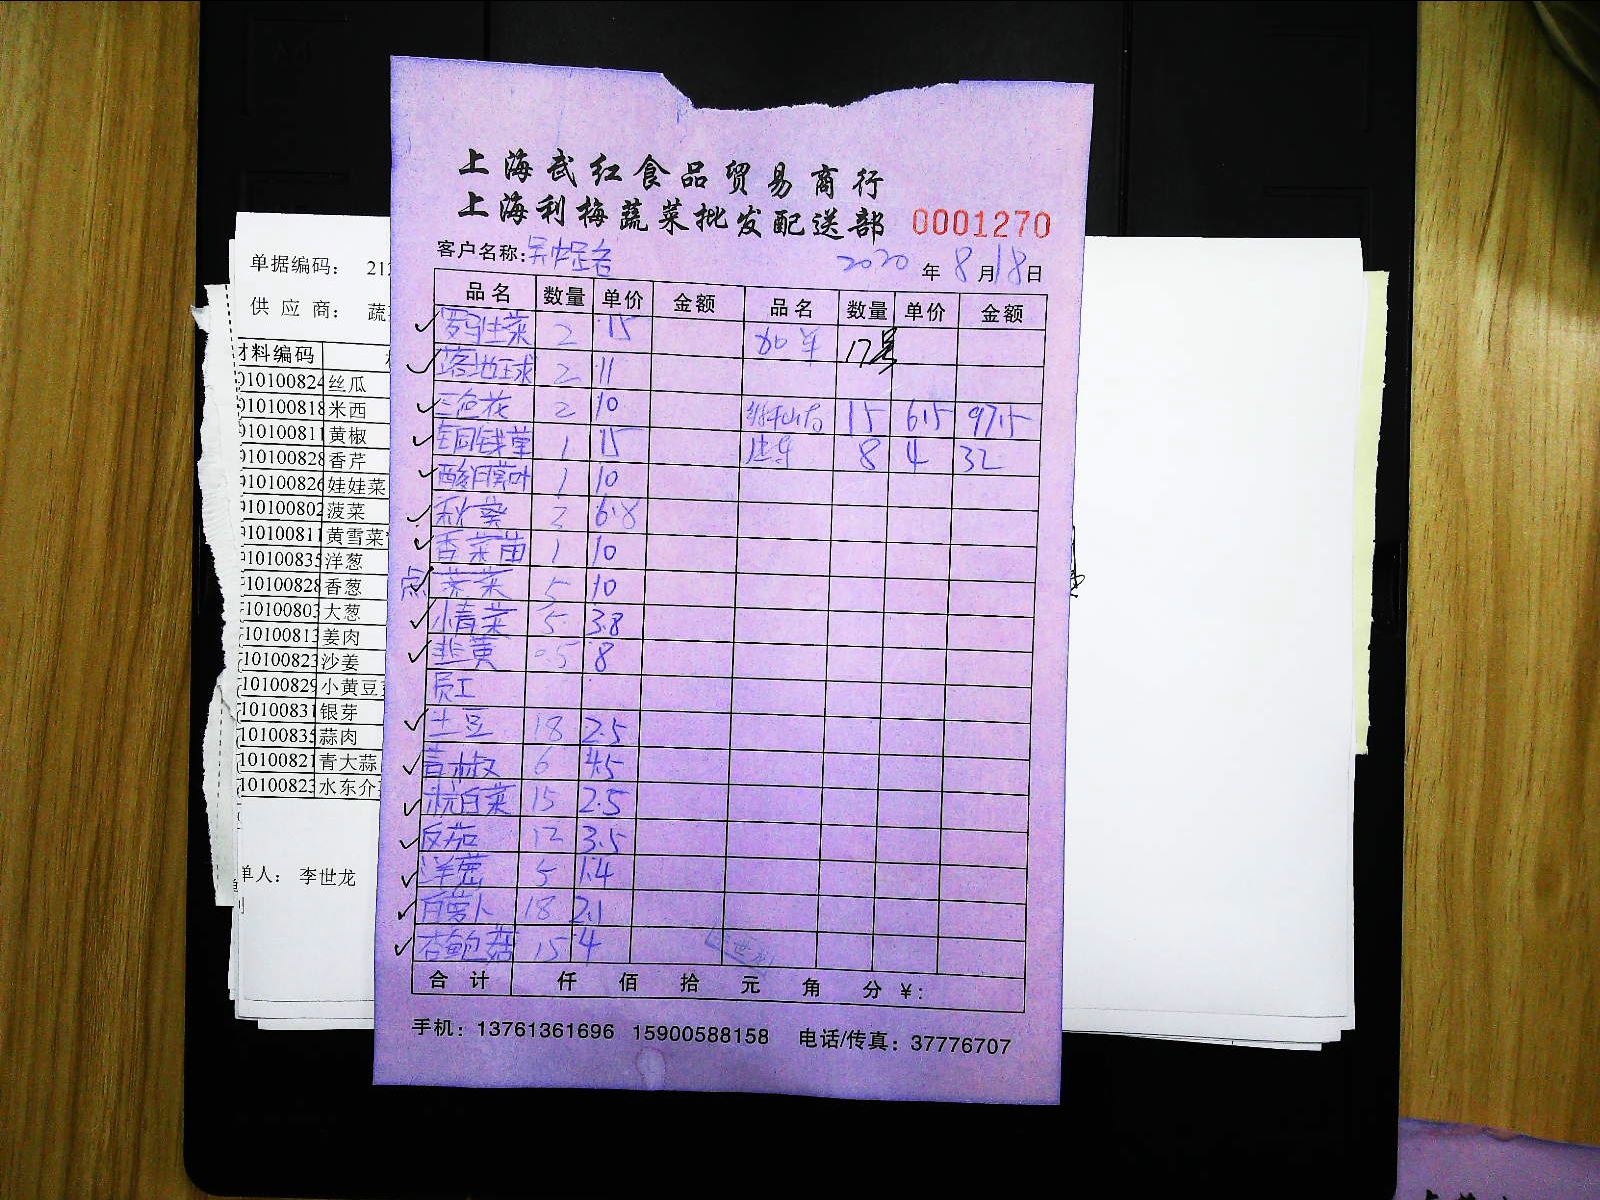 上海武红食品贸易商行
上海利梅蔬菜批发配送部 0001270
客户名称: 2020 年 8 月 18 日
品名 数量 单价 金额 品名 数量 单价 金额
罗马生菜 2 15 加单 17号
落地球 2 11
三色花 2 10 15 6.5 97.5
铜钱草 1 15 8 4 32
酸模叶 1 10
秋葵 2 6.8
香菜苗 1 10
点 茶菜 5 10
小青菜 5 3.8
韭黄 0.5 8
员工
土豆 18 2.5
青椒 6 4.5
杭白菜 15 2.5
反茄 12 3.5
洋葱 5 1.4
白萝卜 18 2.1
杏鲍菇 15 4
合计 仟 佰 拾 元 角 分 ¥:
手机: 13761361696 15900588158 电话/传真: 37776707
单据编码: 21
供应商: 蔬
材料编码
010100824 丝瓜
010100818 米西
010100811 黄椒
010100828 香芹
010100826 娃娃菜
010100802 菠菜
010100811 黄雪菜
010100835 洋葱
10100828 香葱
10100803 大葱
10100813 姜肉
10100823 沙姜
10100829 小黄豆
10100831 银芽
10100835 蒜肉
10100821 青大蒜
10100823 水东介
单人: 李世龙